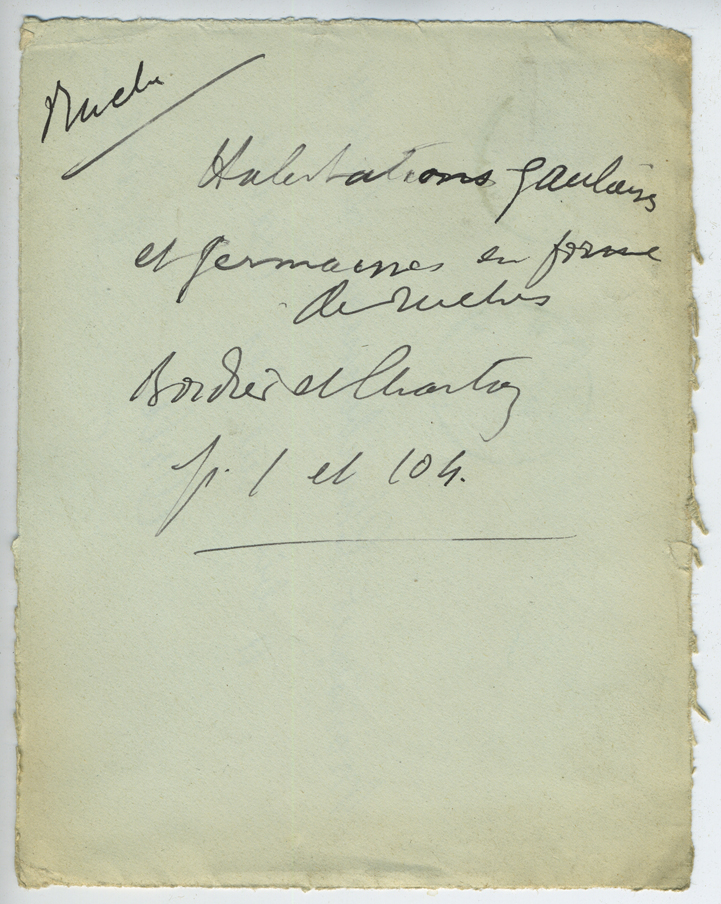 Ruche
Habitations gauloises
et germaines en forme
de ruches
Bordier et Charton
p. 1 et 104.